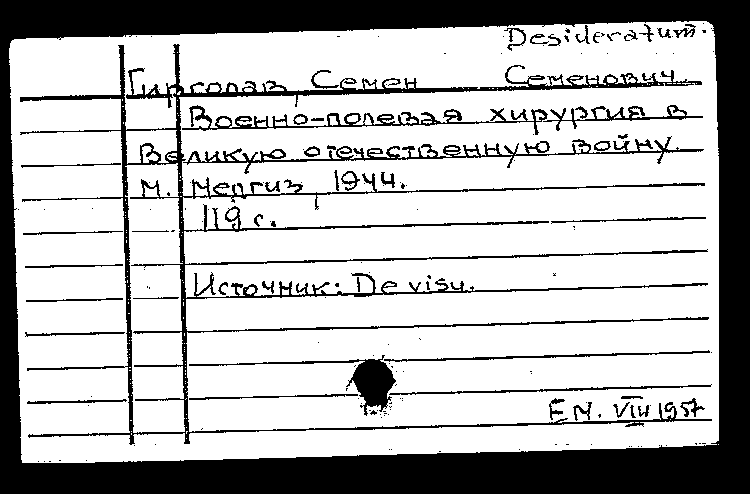 Desideratum.
Гирголав, Семен Семенович.
Военно-полевая хирургия в
Великую отечественную войну.
М. Медгиз, 1944.
119 с.
Источник: De visu.
Е М. VIII 1957